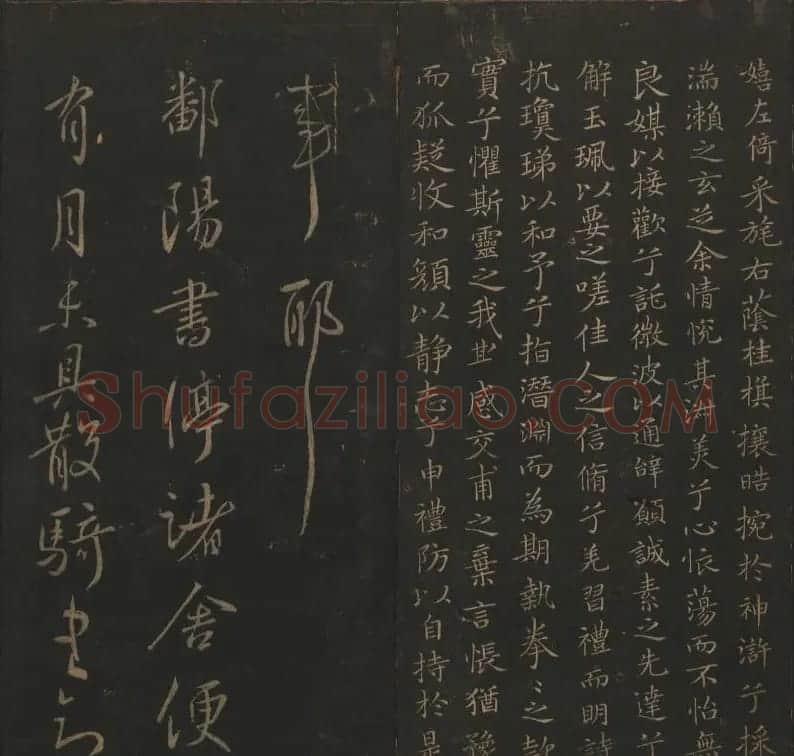 嬉左倚采旄右蔭桂旗攘皓捥於神滸兮採
湍瀨之玄芝余情悅其淑美兮心悵蕩而不怡無
良媒以接歡兮託微波以通辭願誠素之先達兮
解玉珮以要之嗟佳人之信脩兮羌習禮而明詩
抗瓊珶以和予兮指潛淵而為期執拳〻之款
實兮懼斯靈之我欺感交甫之棄言悵猶豫
而狐疑收和顏以静志兮申禮防以自持於是
事耶
鄱陽書停諸舍便
有月未具散騎書
Shufaziliao.COM